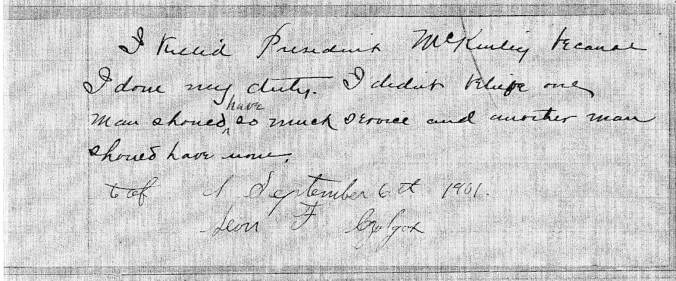 I killd President McKinley because
I done my duty. I didnt beliefe one
man should have so much service and another man
should have none.
September 6th 1901.
Leon F Czolgosz